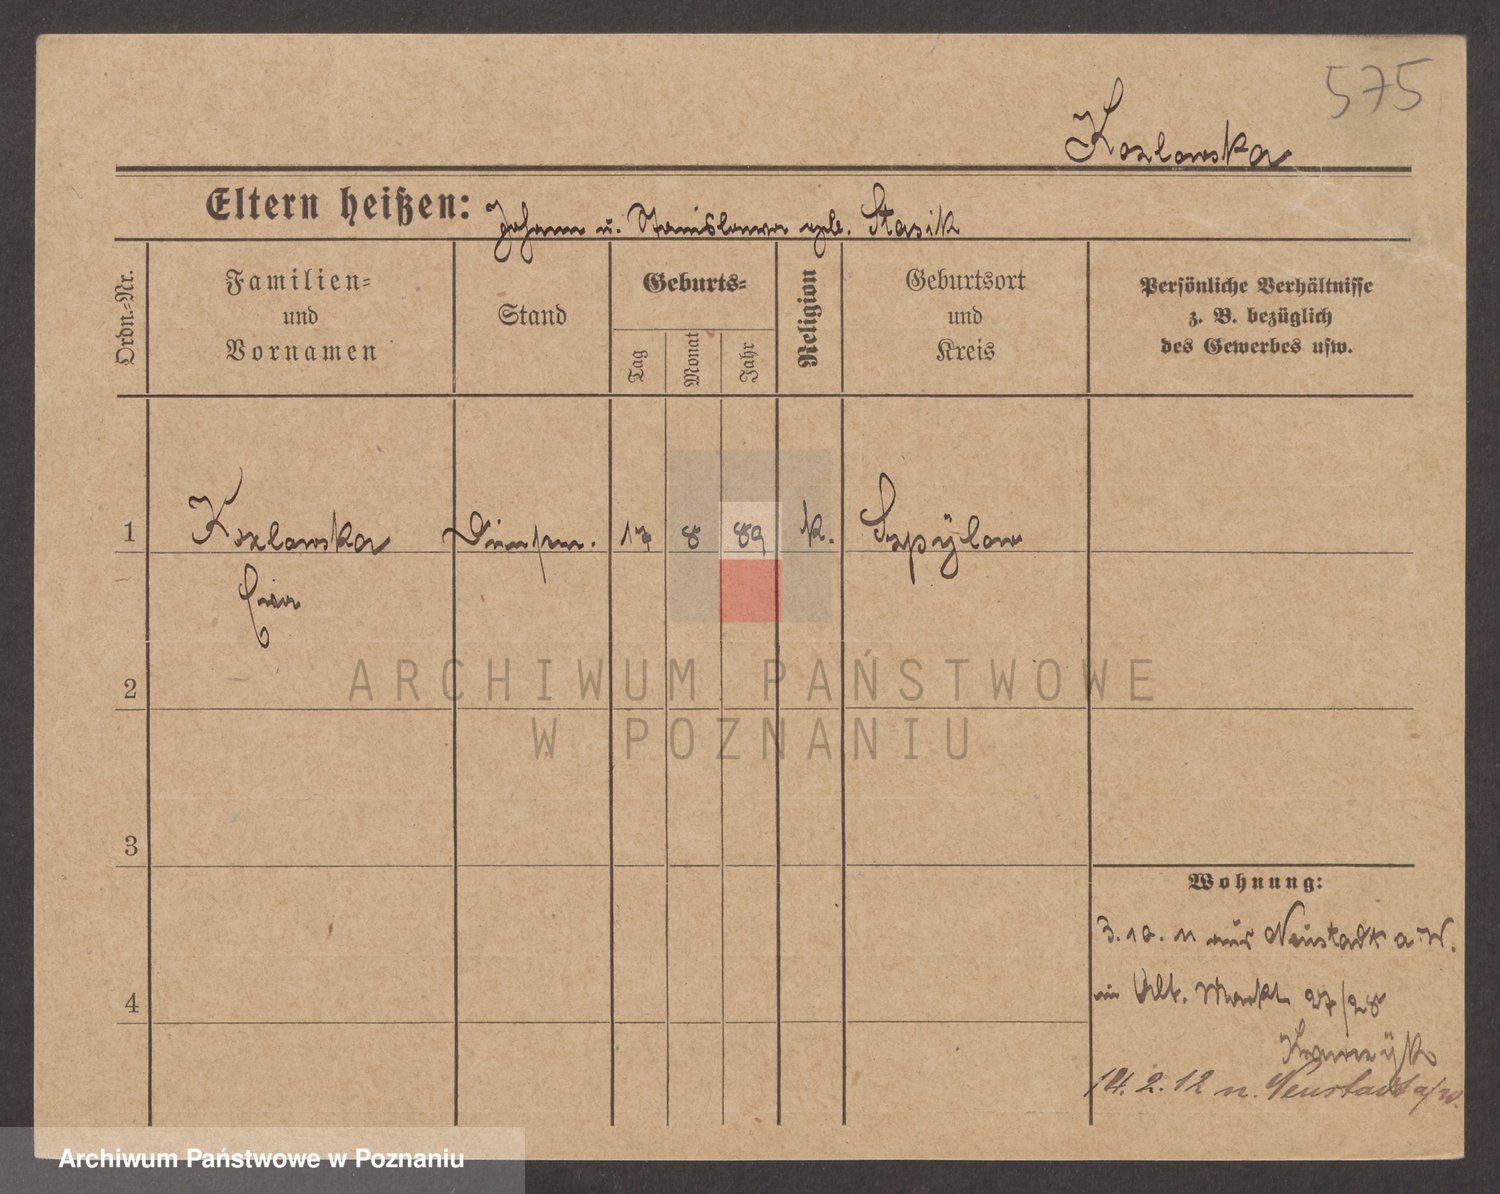 575
Kozlowska
Eltern heißen: Johann u. Stanislawa geb. Stasik
Ordn.-Nr.
Familien-
und
Vornamen
Stand
Geburts-
Tag
Monat
Jahr
Religion
Geburtsort
und
Kreis
Persönliche Verhältnisse
z. B. bezüglich
des Gewerbes usw.
1 Kozlowska 17 8 89 k. Szpÿlow
Ewa
2
ARCHIWUM PAŃSTWOWE
W POZNANIU
3
Wohnung:
3. 10. 11 aus Neustadt a. W.
4
in Alt. Markt 27/28
14. 2. 12 n. Neustadt a/W.
Archiwum Państwowe w Poznaniu